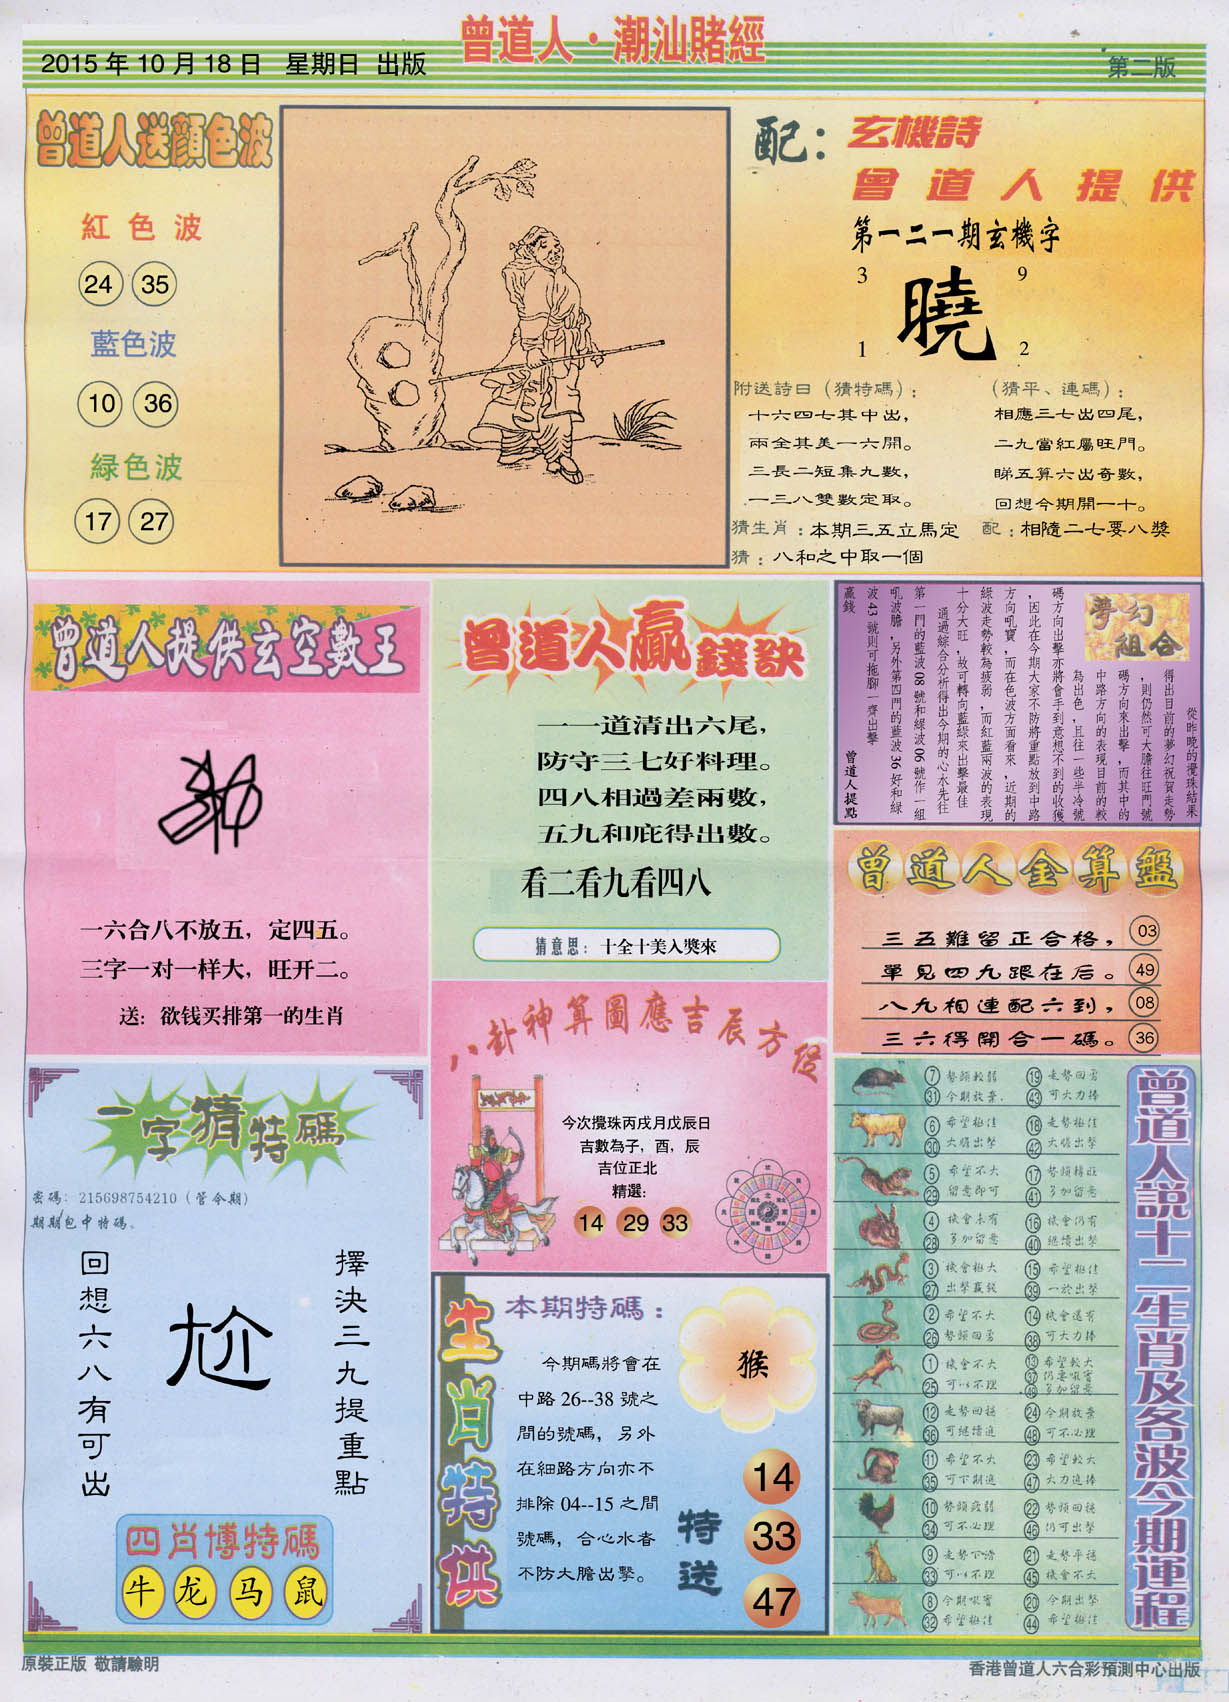 曾道人·潮汕賭經
2015年10月18日 星期日 出版
第二版
曾道人送顏色波
紅色波
24 35
藍色波
10 36
緑色波
17 27
配：玄機詩
曾道人提供
第一二一期玄機字
3 9
曉
1 2
附送詩曰（猜特碼）：
十六四七其中出，
兩全其美一六開。
三長二短集九數，
一三八雙數定取。
（猜平、連碼）：
相應三七出四尾，
二九當紅屬旺門。
睇五算六出奇數，
回想今期開一十。
猜生肖：本期三五立馬定 配：相隨二七要八獎
猜：八和之中取一個
曾道人提供玄空數王
一六合八不放五，定四五。
三字一对一样大，旺开二。
送：欲钱买排第一的生肖
曾道人贏錢訣
一一道清出六尾，
防守三七好料理。
四八相過差兩數，
五九和庇得出數。
看二看九看四八
猜意思：十全十美入獎來
夢幻組合
從昨晚的攪珠結果
得出目前的夢幻祝賀走勢
，則仍然可大膽往旺門號
碼方向來出擊，而其中的
中路方向的表現目前的較
為出色，且往一些半冷號
碼方向出擊亦將會手到意想不到的收獲
，因此在今期大家不防將重點放到中路
方向吼寶，而在色波方面看來，近期的
綠波走勢較為疲弱，而紅藍兩波的表現
十分大旺，故可轉向藍綠來出擊最佳
通過綜合分析得出今期的心水先往
第一門的藍波08號和綠波06號作一組
吼波膽，另外第四門的藍波36好和綠
波43號則可拖腳一齊出擊
贏錢
曾道人提點
曾道人金算盤
三五難留正合格， 03
單見四九跟在后。 49
八九相連配六到， 08
三六得開合一碼。 36
八卦神算圖應吉辰方位
今次攪珠丙戌月戊辰日
吉數為子，酉，辰
吉位正北
精選：
14 29 33
一字猜特碼
密碼：215698754210（管令期）
期期包中特碼。
擇決三九提重點
尬
回想六八有可出
四肖博特碼
牛 龙 马 鼠
生肖特供
本期特碼：
今期碼將會在
中路26--38號之
間的號碼，另外
在細路方向亦不
排除04--15之間
號碼，合心水者
不防大膽出擊。
猴
特送
14
33
47
曾道人説十二生肖及各波今期運程
⑦ 勢頭較弱 ⑲ 走勢回勇
㉛ 今期放棄 ㊸ 可大力捧
⑥ 希望極佳 ⑱ 走勢極佳
㉚ 大膽出擊 ㊷ 大膽出擊
⑤ 希望不大 ⑰ 勢頭轉旺
㉙ 留意即可 ㊶ 多加留意
④ 機會未有 ⑯ 機會仍有
㉘ 多加留意 ㊵ 繼續出擊
③ 機會極大 ⑮ 希望極佳
㉗ 出擊贏錢 ㊴ 一於出擊
② 希望不大 ⑭ 機會還有
㉖ 勢頭回勇 ㊳ 可大力捧
① 機會不大 ⑬ 希望較大
㊲ 仍要吼寶
㉕ 可以不理 ㊾ 多加留意
⑫ 走勢回穩 ㉔ 今期放棄
㊱ 可繼續追 ㊽ 可不必理
⑪ 希望不大 ㉓ 希望較大
㉟ 可下期追 ㊼ 大力追捧
⑩ 勢頭疲弱 ㉒ 勢頭回穩
㉞ 可不必理 ㊻ 仍可出擊
⑨ 走勢下滑 ㉑ 走勢平穩
㉝ 可以不理 ㊺ 機會不大
⑧ 今期吼寶 ⑳ 今期出擊
㉜ 希望極佳 ㊹ 希望極佳
原裝正版 敬請驗明
香港曾道人六合彩預測中心出版